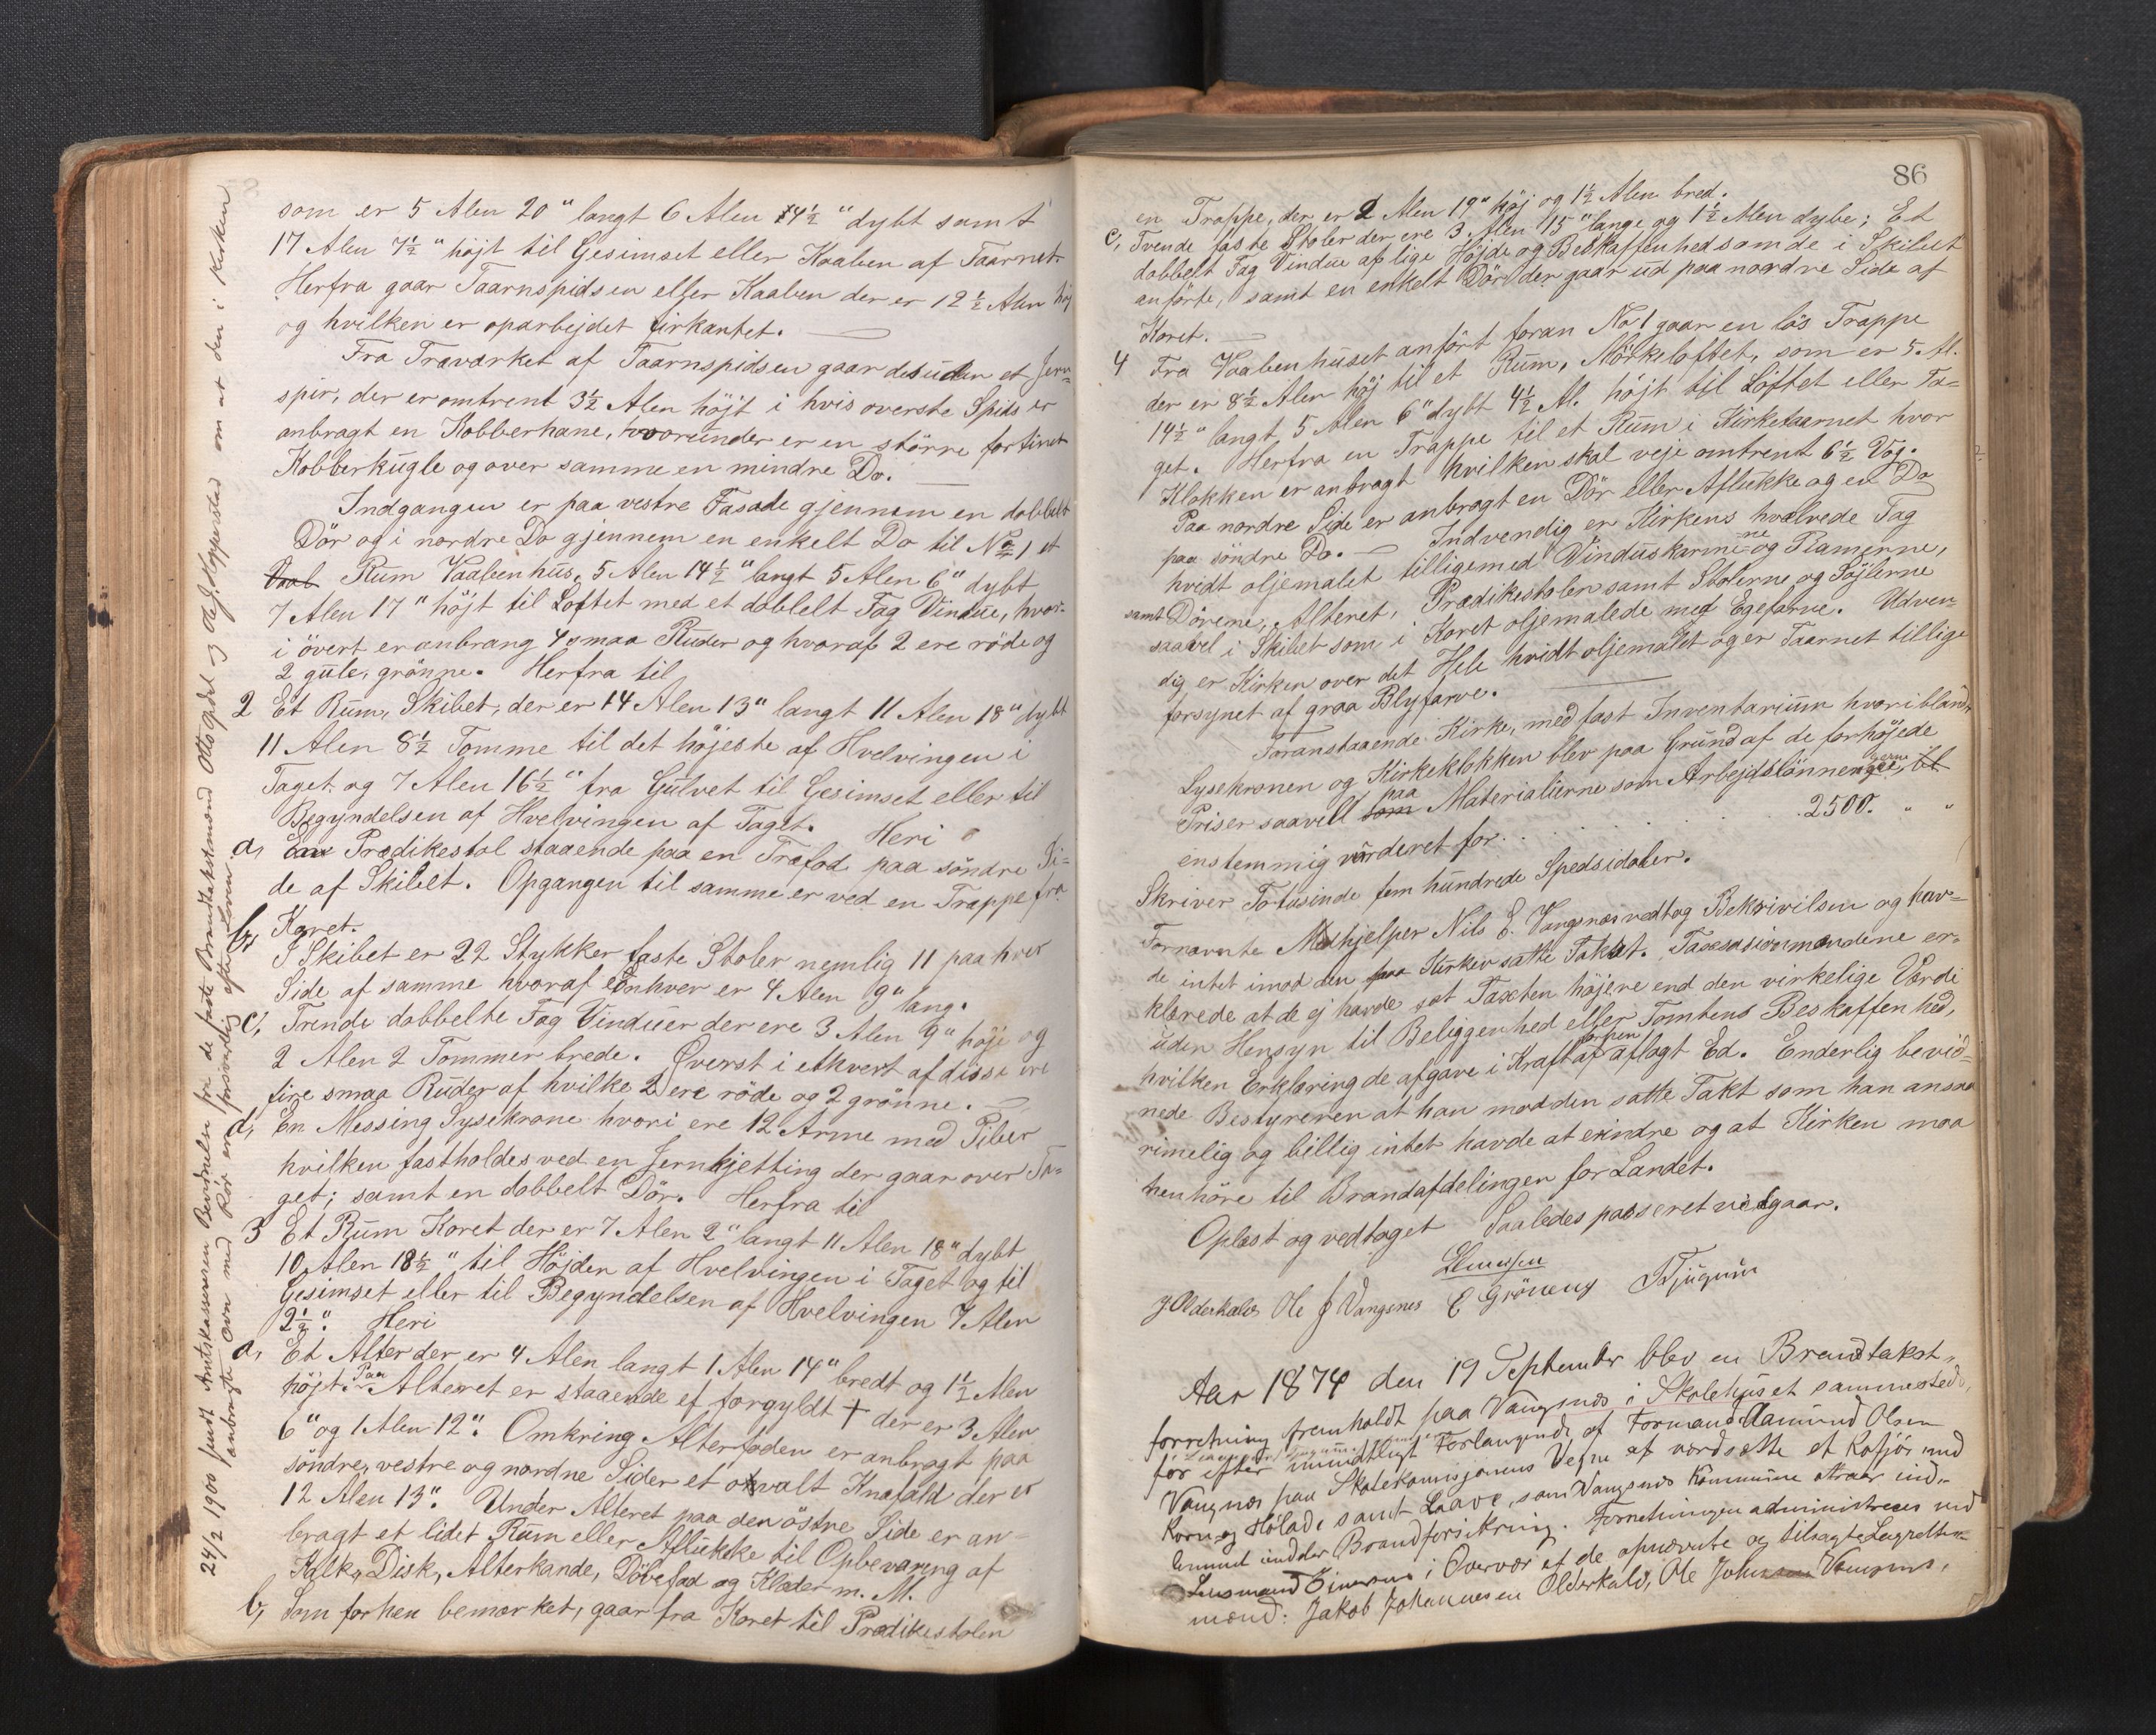 som er 5 Alen 20" langt 6 Alen 14½" dybt samt
17 Alen 7½" højt til Gesimset eller Kaaben af Taarnet.
Herfra gaar Taarnspidsen eller Kaaben der er 12½ Alen høj
og hvilken er oparbejdet firkantet. —
Fra Træværket af Taarnspidsen gaar desuden et Jern=
spir, der er omtrent 3½ Alen højt i hvis øverste Spids er
anbragt en Kobberhane, hvorunder er en større fortinet
Kobberkugle og over samme en mindre Do. —
Indgangen er paa vestre Fasade gjennem en dobbelt
Dør og i nordre Do gjennem en enkelt Do til No 1 et
Rum Vaabenhus, 5 Alen 14½" langt 5 Alen 6" dybt
7 Alen 17" højt til Loftet med et dobbelt Fag Vindue, hvor-
i øvert er anbrang 4 smaa Ruder og hvoraf 2 ere røde og
2 gule, grønne. Herfra til
2 Et Rum, Skibet, der er 14 Alen 13" langt 11 Alen 18" dybt
11 Alen 8½ Tomme til det højeste af Hvelvingen i
Taget og 7 Alen 16½" fra Gulvet til Gesimset eller til
Begyndelsen af Hvelvingen af Taget. Heri
a, En Prædikestol staaende paa en Træfod paa søndre Si=
de af Skibet. Opgangen til samme er ved en Trappe fra
Koret.
b, I Skibet er 22 Stykker faste Stoler nemlig 11 paa hver
Side af samme hvoraf enhver er 4 Alen 9" lang.
c, Trende dobbelte Fag Vinduer der ere 3 Alen 9" høje og
2 Alen 2 Tommer brede. Øverst i ethvert af disse ere
fire smaa Ruder af hvilke 2 ere røde og 2 grønne. —
d, En Messing Lysekrone hvori ere 12 Arme med Piber
hvilken fastholdes ved en Jernkjetting der gaar over Ta=
get; samt en dobbelt Dør. Herfra til
3 Et Rum Koret der er 7 Alen 2" langt 11 Alen 18" dybt
10 Alen 18½" til Højden af Hvelvingen i Taget og til
Gesimset eller til Begyndelsen af Hvelvingen 7 Alen
2½". Heri
a, Et Alter der er 4 Alen langt 1 Alen 14" bredt og 1½ Alen
højt. Paa Alteret er staaende et forgyldt + der er 3 Alen
6" og 1 Alen 12". Omkring Alterfoden er anbragt paa
søndre, vestre og nordre Sider et ovalt Knæfald der er
12 Alen 13". Under Alteret paa den østre Side er an=
bragt et lidet Rum eller Aflukke til Opbevaring af
Kalk, Disk, Alterkande, Døbefad og Klæder m. M.
b, Som forhen bemærket, gaar fra Koret til Prædikestolen
24/2 1900 sendt Amtskassereren Bevidnelse fra de faste Brandtakstmænd Otto Opdal og Ole J. Hopperstad om at den i Kirken
anbragte Ovn med Rør er forsvarlig efter Loven.
86
en Trappe, der er 2 Alen 19" høj og 1½ Alen bred.
c, Tvende faste Stoler der ere 3 Alen 15" lange og 1½ Alen dybe; Et
dobbelt Fag Vindue af lige Højde og Beskaffenhed som de i Skibet
anførte, samt en enkelt Dør der gaar ud paa nordre Side af
Koret. —
4 Fra Vaabenhuset anført foran No 1 gaar en løs Trappe
der er 8½ Alen høj til et Rum, Mørkeloftet, som er 5 Al.
14½" langt 5 Alen 6" dybt 4½ Al. højt til Loftet eller Ta=
get. Herfra en Trappe til et Rum i Kirketaarnet hvor
Klokken er anbragt hvilken skal veje omtrent 6½ Vog.
Paa nordre Side er anbragt en Dør eller Aflukke og en Do
paa søndre Do. — Indvendig er Kirkens hvælvede Tag
hvidt oljemalet tilligemed Vinduskarmene og Ramerne,
samt Dørene, Alteret, Prædikestolen samt Stolerne og Søjlerne
saavel i Skibet som i Koret oljemalede med Egefarve. Udven=
dig er Kirken over det Hele hvidt oljemalet og er Taarnet tillige
forsynet af graa Blyfarve. —
Foranstaaende Kirke, med fast Inventarium hvoriblandt
Lysekronen og Kirkeklokken blev paa Grund af de forhøjede
Priser saavel paa Materialierne som Arbejdslønningerne,
enstemmig vurderet for . . . . . . . 2500. " "
Skriver Totusinde fem hundrede Spedsidaler.
Fornævnte Medhjelper Nils E. Vangsnæs vedtog Bekrivilsen og hav=
de intet imod den Kirken satte Takst. Taxsasionsmændene er=
klærede at de ej havde sat Taxten højere end den virkelige Værdi
uden Hensyn til Beliggenhed eller Tomtens Beskaffenhed,
hvilken Erklæring de afgave i Kraft af forhen aflagt Ed. Enderlig bevid=
nede Bestyreren at han mod den satte Takt som han ansaa
rimelig og billig intet havde at erindre og at Kirken maa
henhøre til Brandafdelingen for Landet.
Oplæst og vedtaget Saaledes passeret vidgaar.
J Olderkalds Ole J Vangsnes E Grøneng T Njugum
Aar 1874 den 19 September blev en Brandtakst-
forretning fremholdt paa Vangsnæs i Skolehuset sammesteds,
før efter mundtligt Forlangende af Formand Aamund Olsen
Vangnæs paa Skolekomisjonens Vegne at værdsætte et Kofjøs med
Korn og Hølade samt Laave, som Vangsnæs Kommune attraar ind-
lemmet under Brandforsikring. Forretningen administreres ved
Lensmand i Overvær af de opnævnte og tilsagte Lagrettes-
mænd: Jakob Johannesen Olderkald, Ole Johnsen Vangsnes,